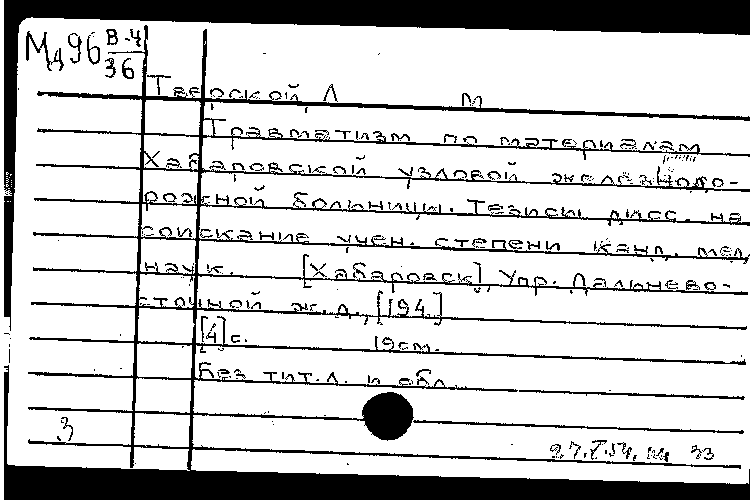 М496 В-4
36
Тверской, Л М
Травматизм по материалам
Хабаровской узловой железнодо-
рожной больницы. Тезисы дисс. на
соискание учен. степени канд. мед.
наук. [Хабаровск], Упр. Дальнево-
сточной ж.д., [194.]
[4] с. 19см.
Без тит.л. и обл.
3
27.V.54. 33